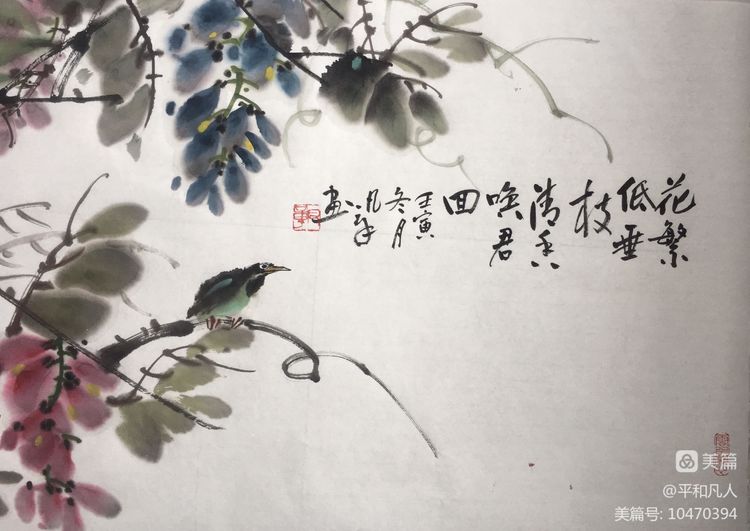 花繁
低垂
枝
清香
唤君
回
壬寅
冬月
凡人
画
美篇
@平和凡人
美篇号: 10470394